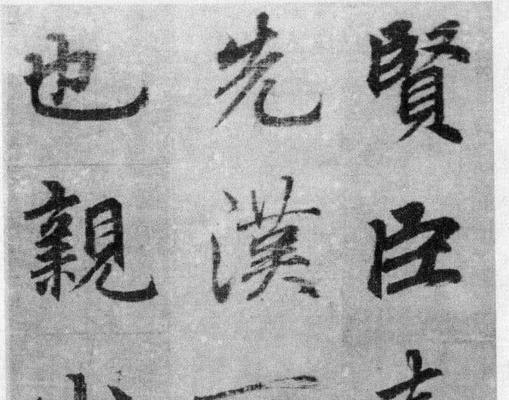 賢臣
先漢
也親